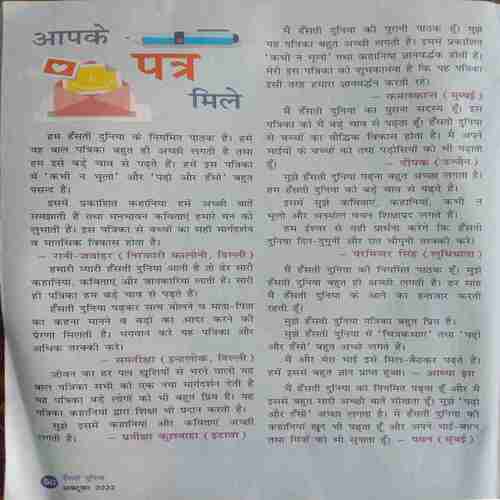 आपके
पत्र
मिले
हम हँसती दुनिया के नियमित पाठक हैं। हमें
यह बाल पत्रिका बहुत ही अच्छी लगती है तथा
हम इसे बड़े चाव से पढ़ते हैं। हमें इस पत्रिका
में 'कभी न भूलो' और 'पढ़ो और हँसो' बहुत
पसन्द है।
इसमें प्रकाशित कहानियां हमें अच्छी बातें
समझाती हैं तथा मनभावन कविताएं हमारे मन को
लुभाती हैं। इस पत्रिका से बच्चों का सही मार्गदर्शन
व मानसिक विकास होता है।
– रानी-जवाहर (निरंकारी कालोनी, दिल्ली)
हमारी प्यारी हँसती दुनिया आती है तो ढेर सारी
कहानियां, कविताएं और जानकारियां लाती है। सारी
ही पत्रिका हम बड़े चाव से पढ़ते हैं।
हँसती दुनिया पढ़कर सत्य बोलने व माता-पिता
का कहना मानने व बड़ों का आदर करने की
प्रेरणा मिलती है। भगवान करे यह पत्रिका और
अधिक तरक्की करे।
– समनरीक्षा (इन्द्रलोक, दिल्ली)
जीवन का हर पल खुशियों से भरने वाली यह
बाल पत्रिका सभी को एक नया मार्गदर्शन देती है
यह पत्रिका बड़े लोगों को भी बहुत प्रिय है। यह
पत्रिका कहानियों द्वारा शिक्षा भी प्रदान करती है।
मुझे इसमें कहानियां और कविताएं अच्छी
लगती हैं। – प्रतीक्षा कुशवाहा (इटावा)
मैं हँसती दुनिया की पुरानी पाठक हूँ। मुझे
यह पत्रिका बहुत अच्छी लगती है। इसमें प्रकाशित
'कभी न भूलो' तथा कहानियां ज्ञानवर्द्धक होती हैं।
मेरी इस पत्रिका को शुभकामना है कि यह पत्रिका
इसी तरह हमारा ज्ञानवर्द्धन करती रहे।
– (मुंबई)
मैं हँसती दुनिया का पुराना सदस्य हूँ। इस
पत्रिका को मैं बड़े चाव से पढ़ता हूँ। हँसती दुनिया
से बच्चों का बौद्धिक विकास होता है। मैं अपने
भाईयों के बच्चों को तथा पड़ोसियों को भी पढ़ाता
हूँ। – दीपक (उज्जैन)
मुझे हँसती दुनिया पढ़ना बहुत अच्छा लगता है।
हम हँसती दुनिया को बड़े चाव से पढ़ते हैं।
इसमें मुझे कविताएं, कहानियां, कभी न
भूलो और अनमोल वचन शिक्षाप्रद लगते हैं।
हम ईश्वर से यही प्रार्थना करेंगे कि हँसती
दुनिया दिन-दुगुनी और रात चौगुनी तरक्की करे।
– परमिन्दर सिंह (लुधियाना)
मैं हँसती दुनिया की नियमित पाठक हूँ। मुझे
हँसती दुनिया बहुत ही अच्छी लगती है। हर माह
मैं हँसती दुनिया के आने का इन्तजार करती
रहती हूँ।
मुझे हँसती दुनिया पत्रिका बहुत प्रिय है।
मुझे हँसती दुनिया में 'चित्रकथाएं' तथा 'पढ़ो
और हँसो' बहुत अच्छे लगते हैं।
मैं और मेरा भाई इसे मिल-बैठकर पढ़ते हैं।
हमें इससे बहुत ज्ञान प्राप्त हुआ। – आस्था झा
मैं हँसती दुनिया को नियमित पढ़ता हूँ और मैं
इससे बहुत सारी अच्छी बातें सीखता हूँ। मुझे 'पढ़ो
और हँसो' अच्छा लगता है। मैं हँसती दुनिया की
कहानियां खुद भी पढ़ता हूँ और अपने भाई-बहन
तथा मित्रों को भी सुनाता हूँ। – पवन (मुंबई)
50 हँसती दुनिया
अक्टूबर 2022